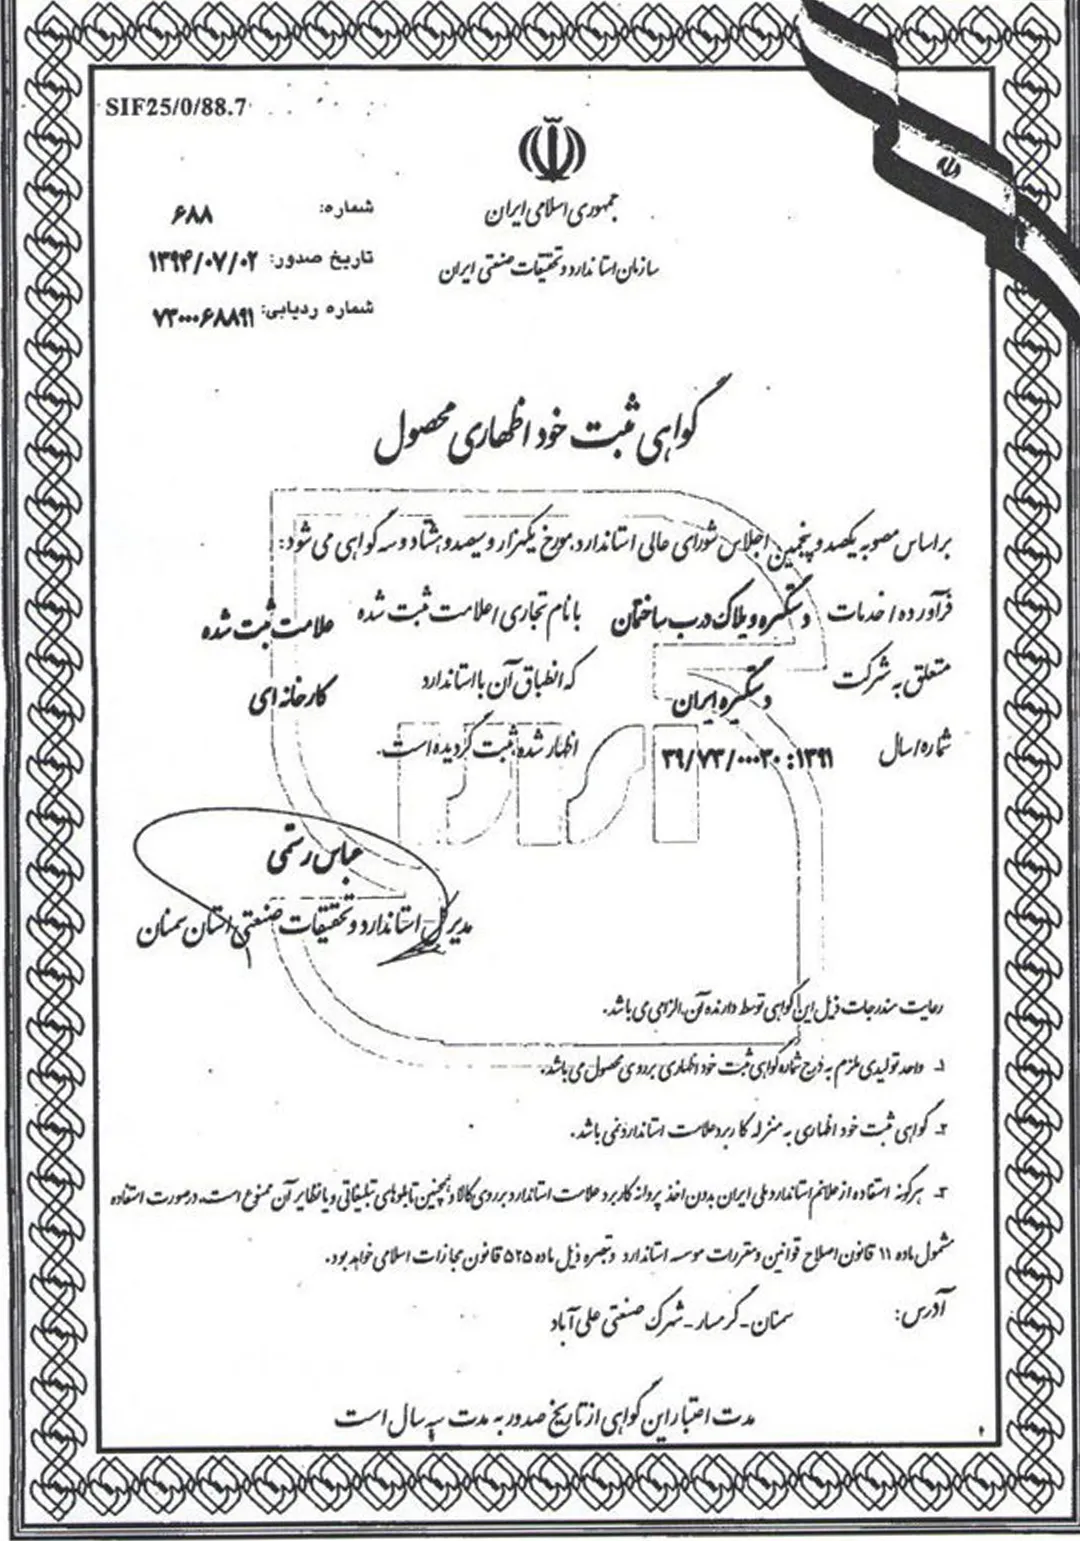 SIF25/0/88.7
جمهوری اسلامی ایران
سازمان استاندارد و تحقیقات صنعتی ایران
شماره: ۶۸۸
تاریخ صدور: ۱۳۹۴/۰۷/۰۲
شماره ردیابی: ۷۳۰۰۰۶۸۸۹۱
گواهی ثبت خود اظهاری محصول
بر اساس مصوبه یکصد و پنجمین اجلاس شورای عالی استاندارد مورخ یکهزار و سیصد و هشتاد و سه گواهی می شود:
فرآورده / خدمات دستگیره و پلاک درب ساختمان با نام تجاری / علامت ثبت شده علامت ثبت شده
متعلق به شرکت دستگیره ایران که انطباق آن با استاندارد کارخانه ای
شماره / سال ۱۳۹۱: ۳۹/۷۳/۰۰۰۳۰ اظهار شده، ثبت گردیده است.
عباس رستمی
مدیر کل استاندارد و تحقیقات صنعتی استان سمنان
رعایت مندرجات ذیل این گواهی توسط دارنده آن، الزامی می باشد.
۱- واحد تولیدی ملزم به درج شماره گواهی ثبت خود اظهاری بر روی محصول می باشد.
۲- گواهی ثبت خود اظهاری به منزله کاربرد علامت استاندارد نمی باشد.
۳- هرگونه استفاده از علائم استاندارد ملی ایران بدون اخذ پروانه کاربرد علامت استاندارد بر روی کالا و همچنین تابلوهای تبلیغاتی و یا نظایر آن ممنوع است، در صورت استفاده
مشمول ماده ۱۱ قانون اصلاح قوانین و مقررات موسسه استاندارد و تبصره ذیل ماده ۵۲۵ قانون مجازات اسلامی خواهد بود.
آدرس: سمنان - گرمسار - شهرک صنعتی علی آباد
مدت اعتبار این گواهی از تاریخ صدور به مدت سه سال است